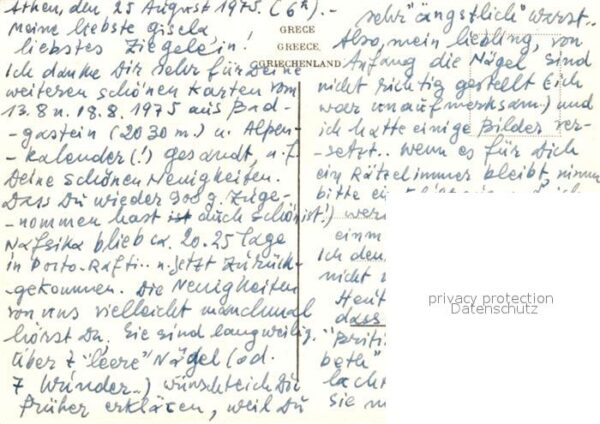 Athen, den 25 August 1975. (6h).-
Meine liebste Gisela,
liebstes Ziegelein!
Ich danke Dir sehr für Deine
weiteren schönen Karten vom
13.8 u. 18.8.1975 aus Bad-
-gastein (2030 m.) u. Alpen-
-kalender (!) gesandt, u. f.
Deine schönen Neuigkeiten.
Dass Du wieder 900 g. Zuge-
-nommen hast ist auch schön!
Nafsika blieb ca. 20-25 Tage
in Porto-Rafti.. u. jetzt zurück-
-gekommen. Die Neuigkeiten
von uns vielleicht manchmal
hörst Du. Sie sind langweilig.
Über 7 "leere" Nägel (od.
7 Wunder..) wünschte ich Dir
früher erklären, weil Du
GRECE
GREECE
GRIECHENLAND
sehr "ängstlich" warst..
Also, mein Liebling, von
Anfang die Nägel sind
nicht richtig gestellt (ich
war unaufmerksam) und
ich hatte einige Bilder ver-
-setzt.. wenn es für Dich
ein Rätsel immer bleibt, nimm
bitte ein
ist!) wer
einm
Ich den
nicht
Heut
dass
"Briti
beth"
lach
Sie
privacy protection
Datenschutz